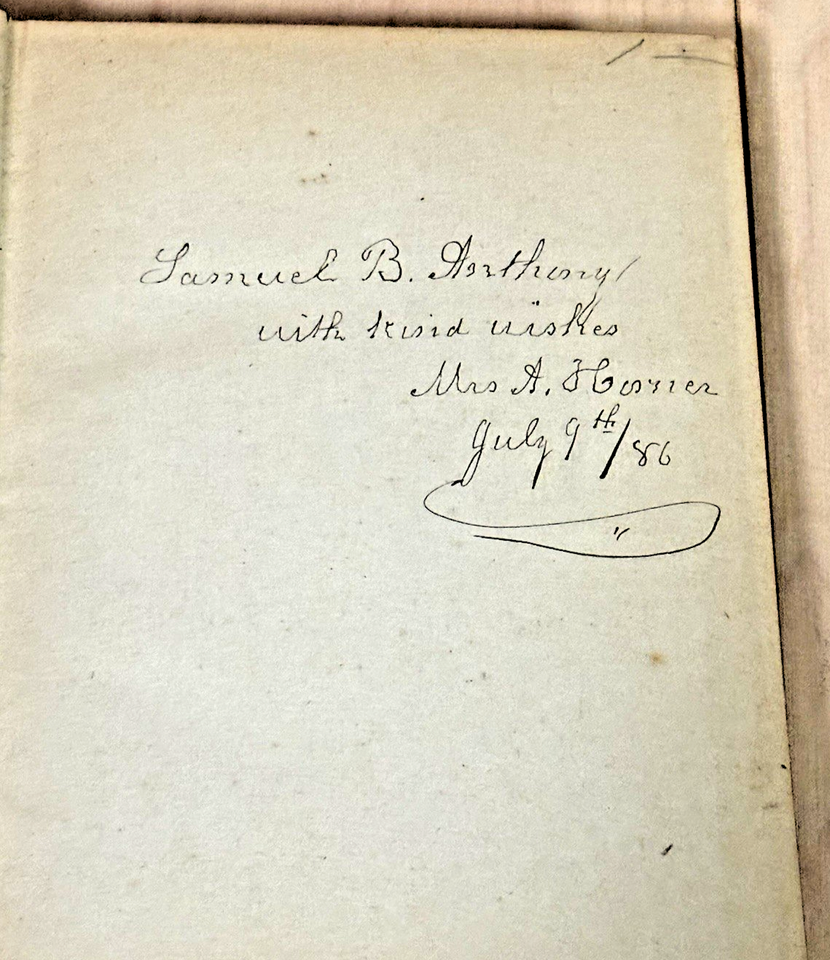 Samuel B. Anthony
with kind wishes
Mrs A. Horner
July 9th/86